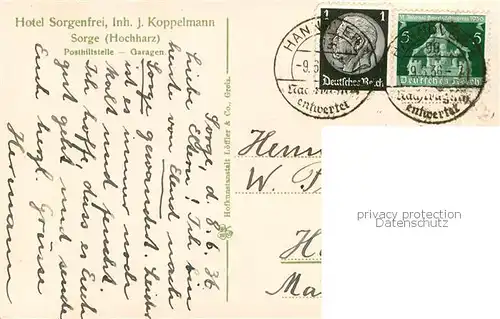 Hotel Sorgenfrei, Inh. J. Koppelmann
Sorge (Hochharz)
Posthilfstelle — Garagen.
Sorge, d. 8. 6. 36.
Liebe Eltern! Ich bin
heute von Elend nach
Sorge gewandert. Leider
ist es immer noch
kalt und feucht.
Ich hoffe, dass es Euch
gut geht und sende
Euch herzl. Grüsse
Hermann
Hofkunstanstalt Löffler & Co., Greiz.
1
Deutsches Reich
5
5
Deutsches Reich
Nachträglich
entwertet
Nachträglich
entwertet
Herrn
W.
privacy protection
watermark